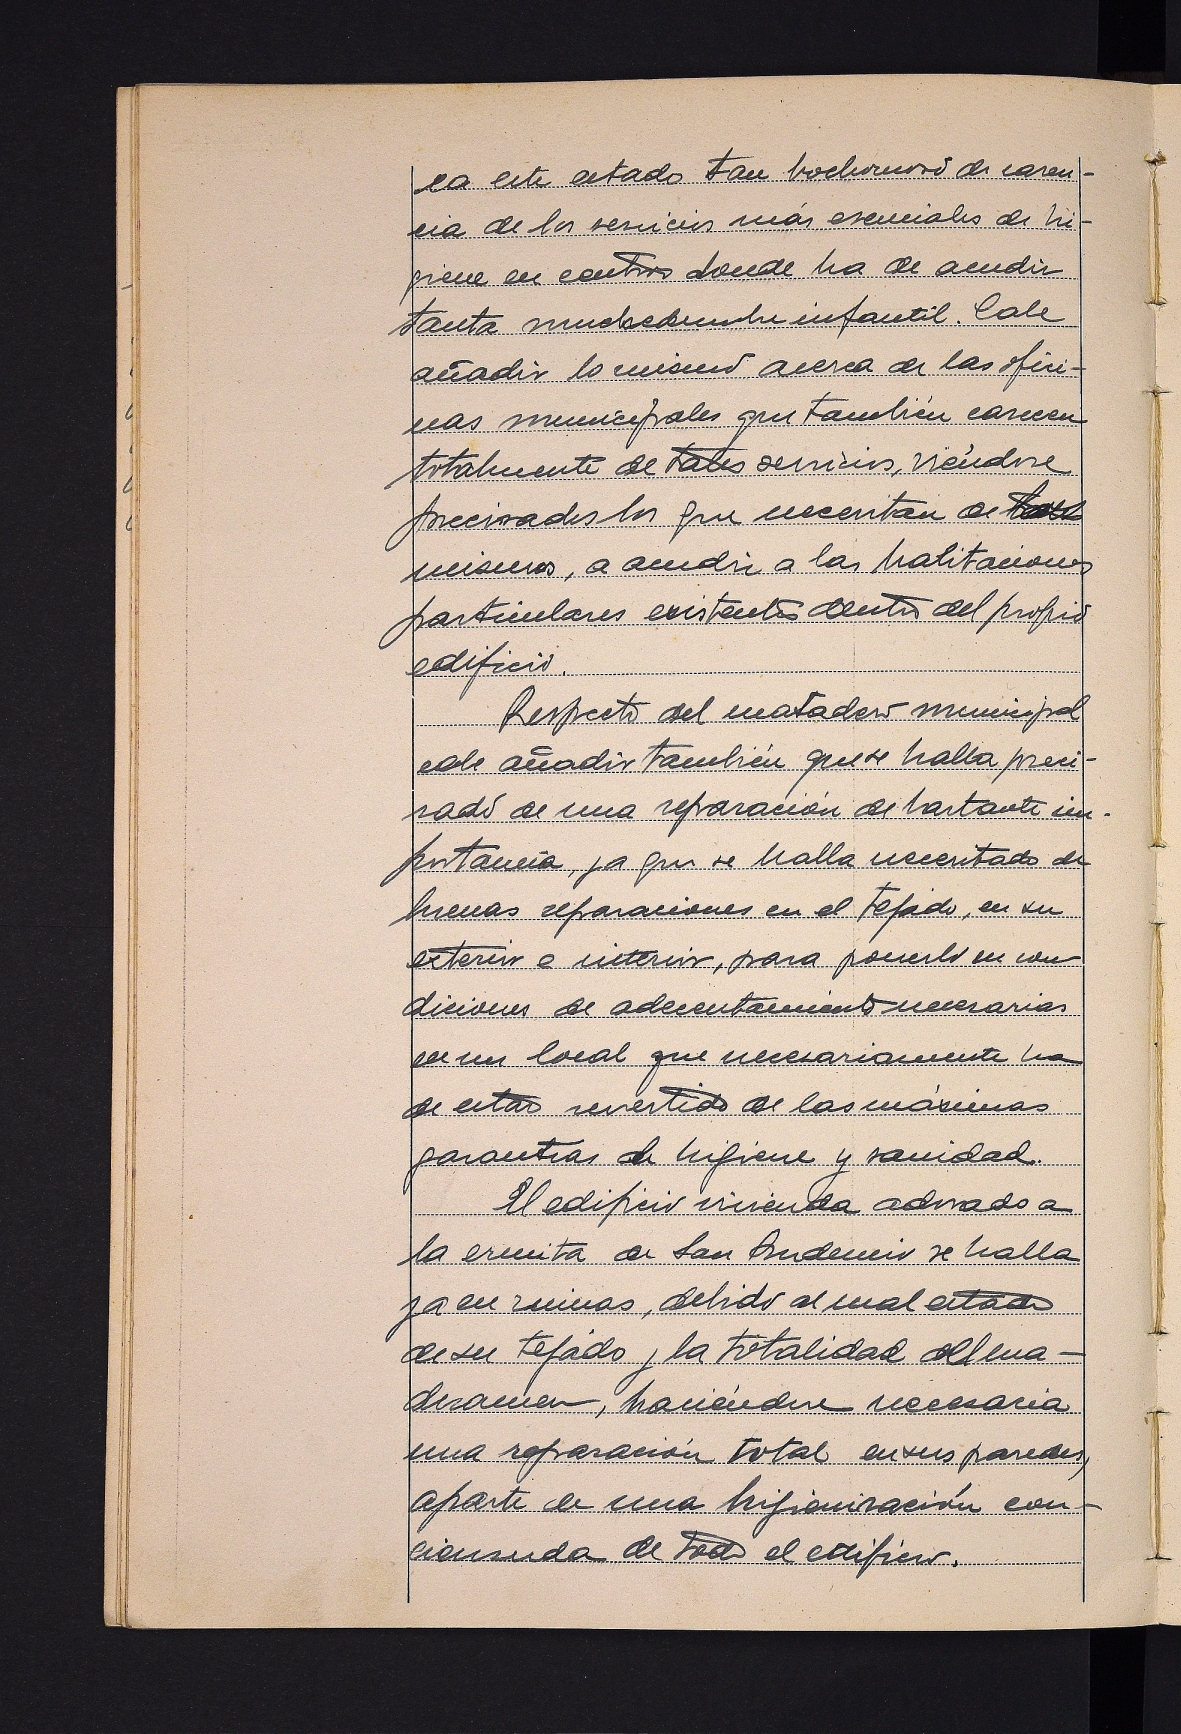 ca este estado tan bochornoso de caren-
cia de los servicios más esenciales de hi-
giene en centros donde ha de acudir
tanta muchedumbre infantil. Cabe
añadir lo mismo acerca de las ofici-
nas municipales que también carecen
totalmente de tales servicios, viéndose
precisados los que necesitan de los
mismos, a acudir a las habitaciones
particulares existentes dentro del propio
edificio.
Respecto del matadero municipal
cabe añadir también que se halla preci-
sado de una reparación de bastante im-
portancia, ya que se halla necesitado de
buenas reparaciones en el tejado, en su
exterior e interior, para ponerlo en con-
diciones de adecentamiento necesarias
en un local que necesariamente ha
de estar revestido de las máximas
garantías de higiene y sanidad.
El edificio vivienda adosado a
la ermita de San Prudencio se halla
ya en ruinas, debido al mal estado
de su tejado y la totalidad del ma-
deramen, haciéndose necesaria
una reparación total en sus paredes,
aparte de una higienización con-
cienzuda de todo el edificio.